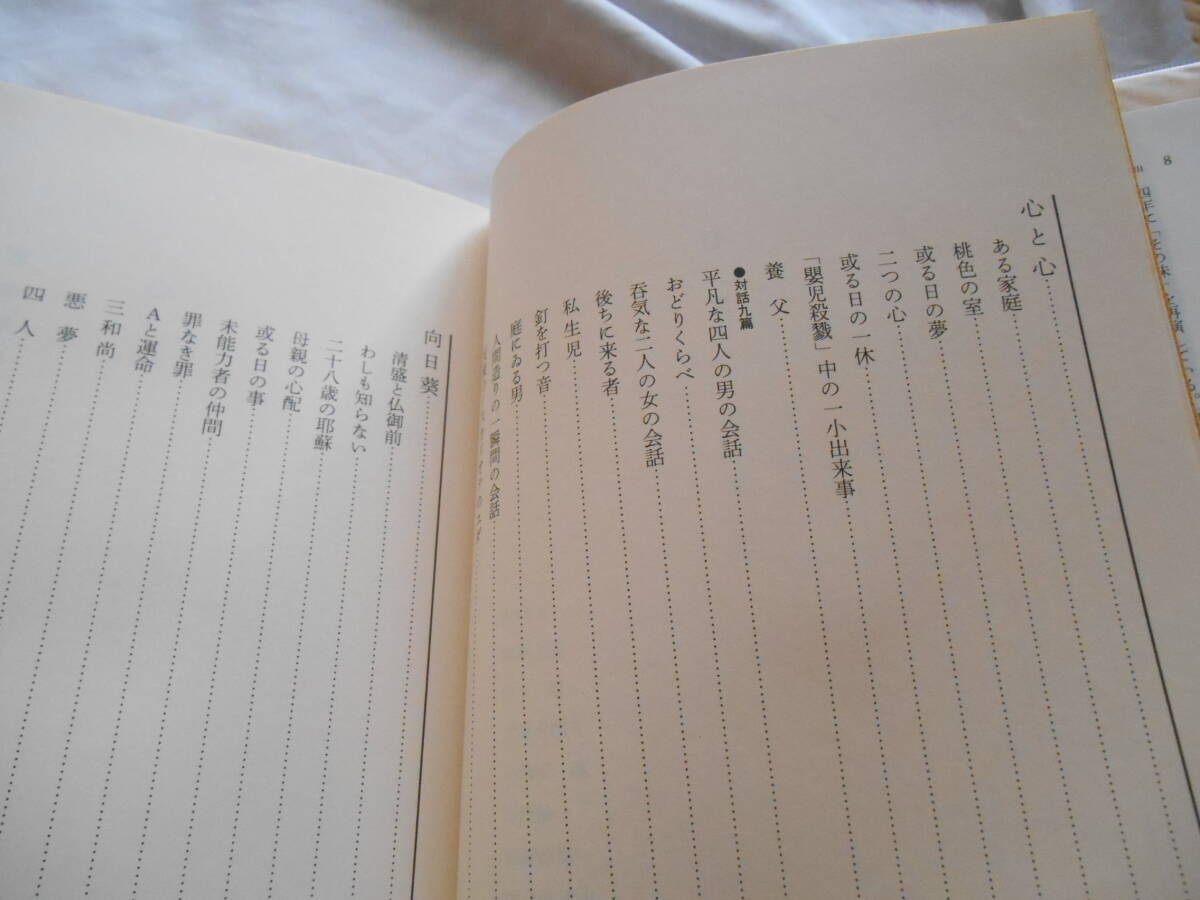 8
心と心
ある家庭
桃色の室
或る日の夢
二つの心
或る日の一休
「嬰児殺戮」中の一小出来事
養父
●対話九篇
平凡な四人の男の会話
おどりくらべ
呑気な二人の女の会話
後ちに来る者
私生児
釘を打つ音
庭にゐる男
人間造りの一瞬間の会話
向日葵
清盛と仏御前
わしも知らない
二十八歳の耶蘇
母親の心配
或る日の事
未能力者の仲間
罪なき罪
Aと運命
三和尚
悪夢
四人